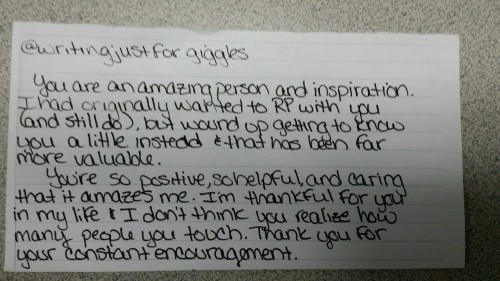 @writingjustforgiggles
You are an amazing person and inspiration.
I had originally wanted to RP with you
(and still do), but wound up getting to know
you a little instead & that has been far
more valuable.
You're so positive, so helpful, and caring
that it amazes me. I'm thankful for you
in my life & I don't think you realize how
many people you touch. Thank you for
your constant encouragement.